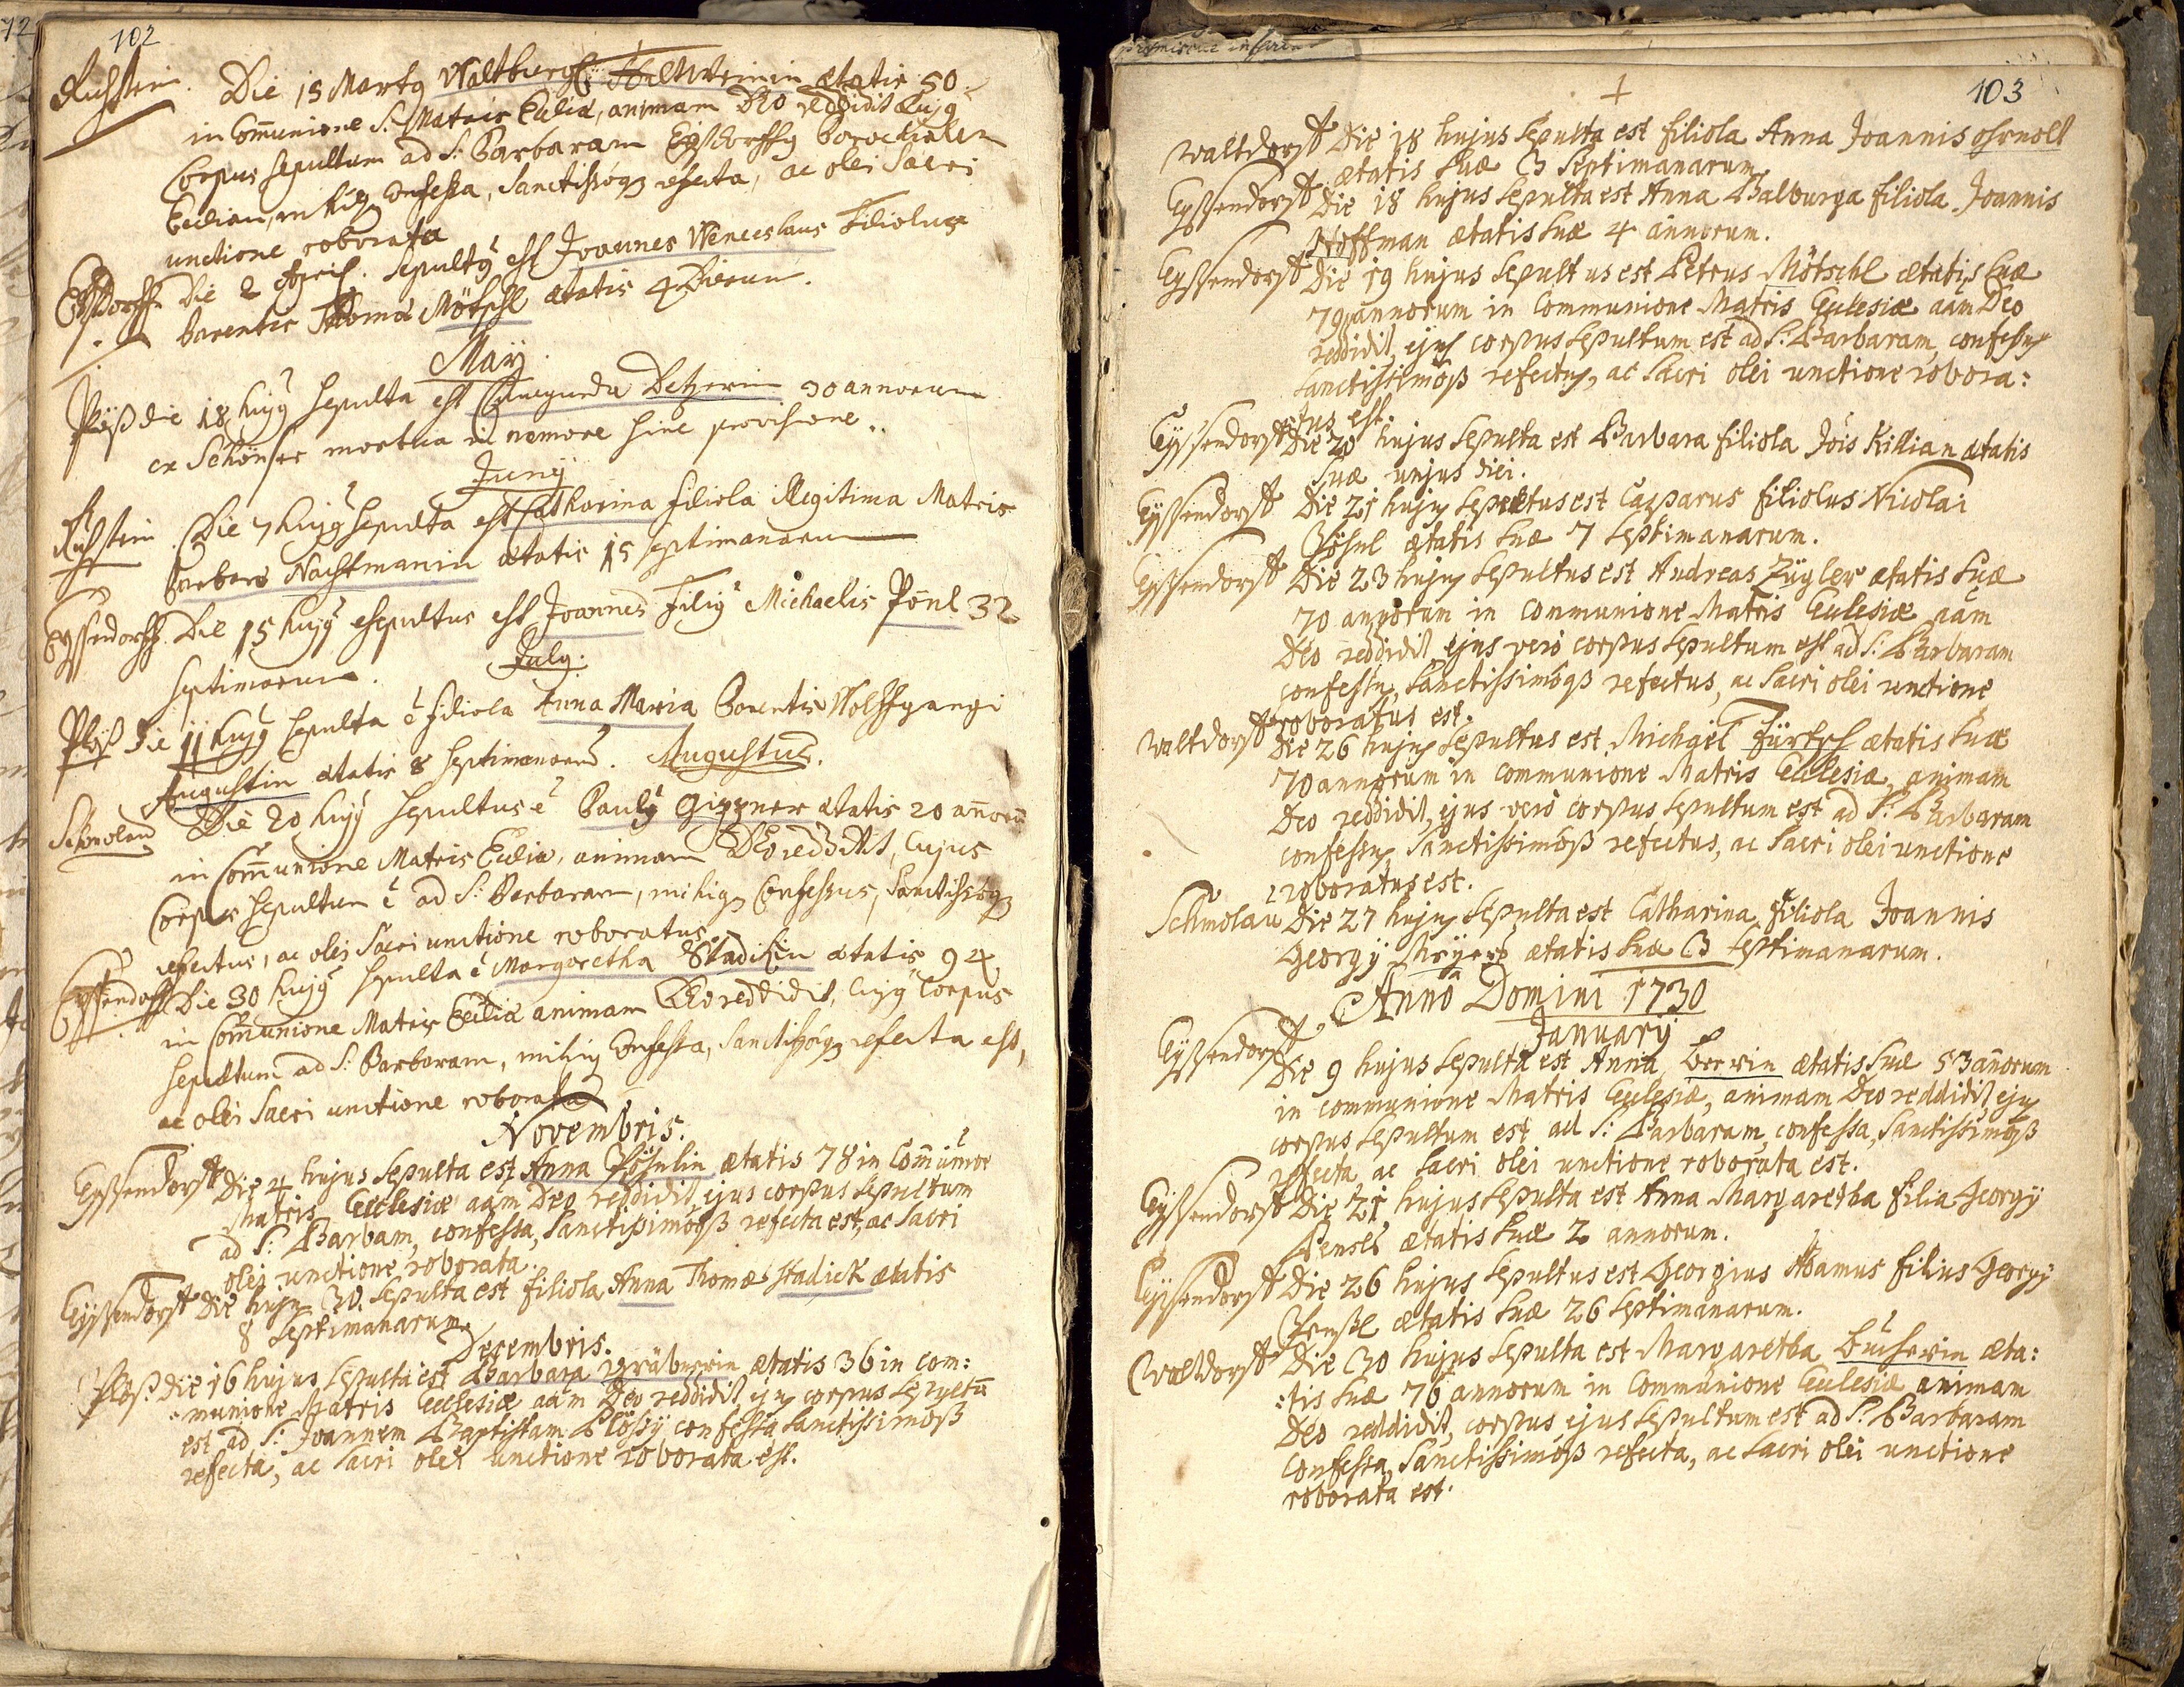 102
Die 15 Martÿ Waltburg ætatis 50
in Com̄unione S: Matris Eccliæ, animam DEO reddidit Cujꝰ
Corpus sepultum ad S: Barbaram
mihiq confessa, Sanctissõq refecta, ac olei Sacri
unctione roborata
Die 2 April. Sepultꝰ est Joannes Wenceslaus Filiolus
Parentis Thomæ Mötschl ætatis 4 Dierum.
May
Plöß die 18 hujꝰ sepulta est Cunegunda 30 annorum
ex mortua in nemore sine provisione..
Junÿ
Die 7 hujꝰ sepulta est Catharina filiola illegitima Matris
Barbaræ Nachtmanin ætatis 15 septimanarum
Eyssendorff. Die 15 hujꝰ sepultus est Joannes Filiꝰ Michaelis Pönl 32
septimanarum.
July.
Plöß Die 11 hujꝰ sepulta ē filiola Anna Maria Parentis Wolffgangi
Augustin ætatis 8 septimanarum. Augustus.
Die 20 hujꝰ sepultus ē Paulꝰ ætatis 20 an̄orū
in Com̄unione Matris Eccliæ, animam DEO reddidit, Cujus
Corpus sepultum ē ad S: Barbaram, mihiq Confessus, Sanctissõq
refectus, ac olei Sacri unctione roboratus.
Eyssendorff Die 30 hujꝰ sepulta ē Margaretha Stadikin ætatis 94
in Com̄unione Matris Eccliæ animam DEO reddidit, Cujꝰ Corpus
sepultum ad S: Barbaram, mihiq Confessa, Sanctissõq refecta est,
ac olei Sacri unctione roborata
Novembris.
Eyssendorff Die 4 hujus Sepulta est Anna ætatis 78 in Com̄unioe
Matris Ecclesiæ aãm Deo reddidit, ejus corpus sepultum
ad S: Barbam, confessa, Sanctissimõqß refecta est, ac Sacri
olei unctione roborata.
Eyssendorff Die hujꝰ 30. Sepulta est filiola Anna Thomæ Stadick ætatis
8 Septimanarum.
Decembris.
Plöß. die 16 hujus Sepulta est Barbara ætatis 36 in com:
munione Matris Ecclesiæ aãm Deo reddidit ejꝰ corpus sepultū
est ad S: Joannem Baptistam Plössÿ confessa Sanctissimõß
refecta, ac Sacri olei unctione roborata est.
103
Waltdorff Die 18 hujus Sepulta est filiola Anna Joannis
ætatis suæ 3 Septimanarum.
Eyssendorff Die 18 hujus Sepulta est Anna Balburga filiola Joannis
Hoffman ætatis suæ 4 annorum.
Eyssendorff Die 19 hujus Sepultus est Petrus Mötschl ætatis suæ
79 annorum in Communione Matris Ecclesiæ aãm Deo
reddidit, ejus corpus Sepultum est ad S: Barbaram, confessꝰ
Sanctissimõß refectꝰ, ac Sacri olei unctione robora:
tus est.
Eyssendorff Die 20 hujus Sepulta est Barbara filiola Jois Killian ætatis
Suæ unjus diei.
Eyssendorff Die 21 hujꝰ Sepultus est Casparus filiolus Nicolai
ætatis suæ 7 Septimanarum.
Eyssendorff Die 23 hujꝰ Sepultus est Andreas Zügler ætatis suæ
70 annorum in communione Matris Ecclesiæ aãm
Deo reddidit ejus verò corpus sepultum est ad S: Barbaram
confessꝰ, Sanctissimõqß refectus, ac Sacri olei unctione
roboratus est.
Waltdorff Die 26 hujꝰ Sepultus est Michael ætatis suæ
70 annorum in communione Matris Ecclesiæ, animam
Deo reddidit, ejus verò corpus Sepultum est ad S: Barbaram
confessꝰ, Sanctissimõß refectus, ac Sacri olei unctione
roboratus est.
Schmolau Die 27 hujꝰ Sepulta est Catharina filiola Joannis
Georgÿ ætatis suæ 3 Septimanarum.
Anno Domini 1730
Januarÿ
Eyssendorff Die 9 hujus Sepulta est Anna ætatis suæ 53 añorum
in communione Matris Ecclesiæ, animam Deo reddidit ejꝰ
corpus Sepultum est ad S: Barbaram, confessa, Sanctissimõß
refecta ac Sacri olei unctione roborata est.
Eyssendorff Die 21 hujus Sepulta est Anna Margaretha filia Georgÿ
ætatis suæ 2 annorum.
Eyssendorff Die 26 hujus Sepultus est Georgius Adamus filius Georgÿ
ætatis suæ 26 Septimanarum.
Waltdorff Die 30 hujus Sepulta est Margaretha æta:
:tis suæ 76 annorum in Communione Ecclesiæ animam
Deo reddidit, corpus ejus Sepultum est ad S: Barbaram
confessa, Sanctissimõß refecta, ac Sacri olei unctione
roborata est.